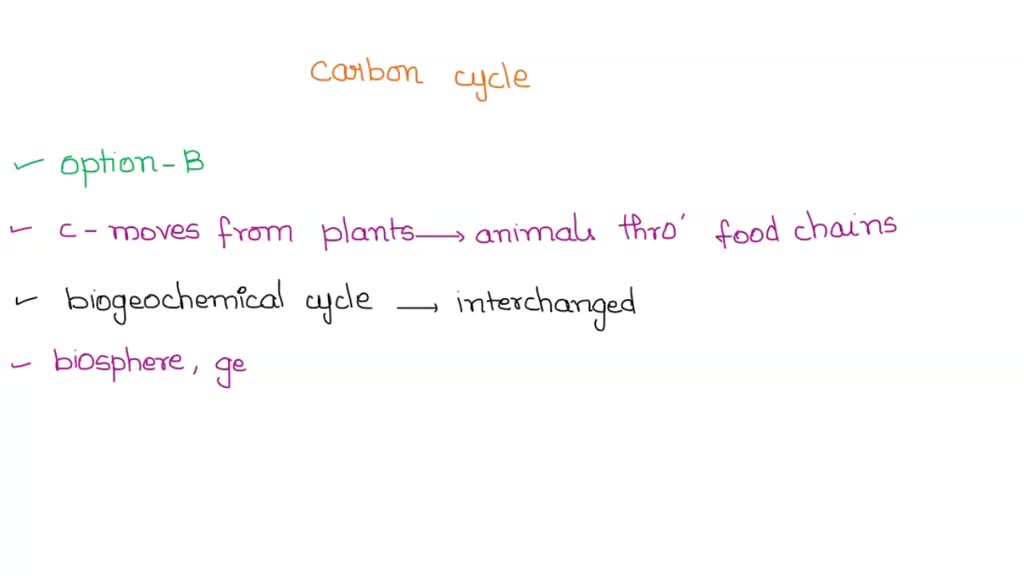 carbon cycle
option-B
c - moves from plants → animals thro' food chains
biogeochemical cycle → interchanged
biosphere, ge